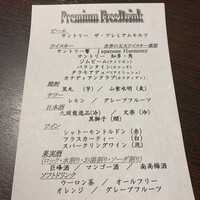 Premium FreeDrink
ビール
サントリー ザ・プレミアムモルツ
ウイスキー 世界の五大ウイスキー厳選
サントリー響 Japanese Harmony
サントリー 知多・角
ジムビーム(アメリカン)
バランタイン(スコッチ)
タラモアデュー(アイリッシュ)
カナディアンクラブ(カナディアン)
焼酎
黒丸 (芋) / 山紫水明 (麦)
サワー
レモン / グレープフルーツ
日本酒
九頭龍逸品(冷) / 文楽 (冷)
黒獅子 (燗)
ワイン
シャトーモンドル(赤)
フラスカーティー(白)
スパークリングワイン(泡)
果実酒
(ロック・水割り・お湯割り・ソーダ割り)
巨峰酒 / マンゴー酒 / 南高梅酒
ソフトドリンク
ウーロン茶 / オールフリー
オレンジ / グレープフルーツ